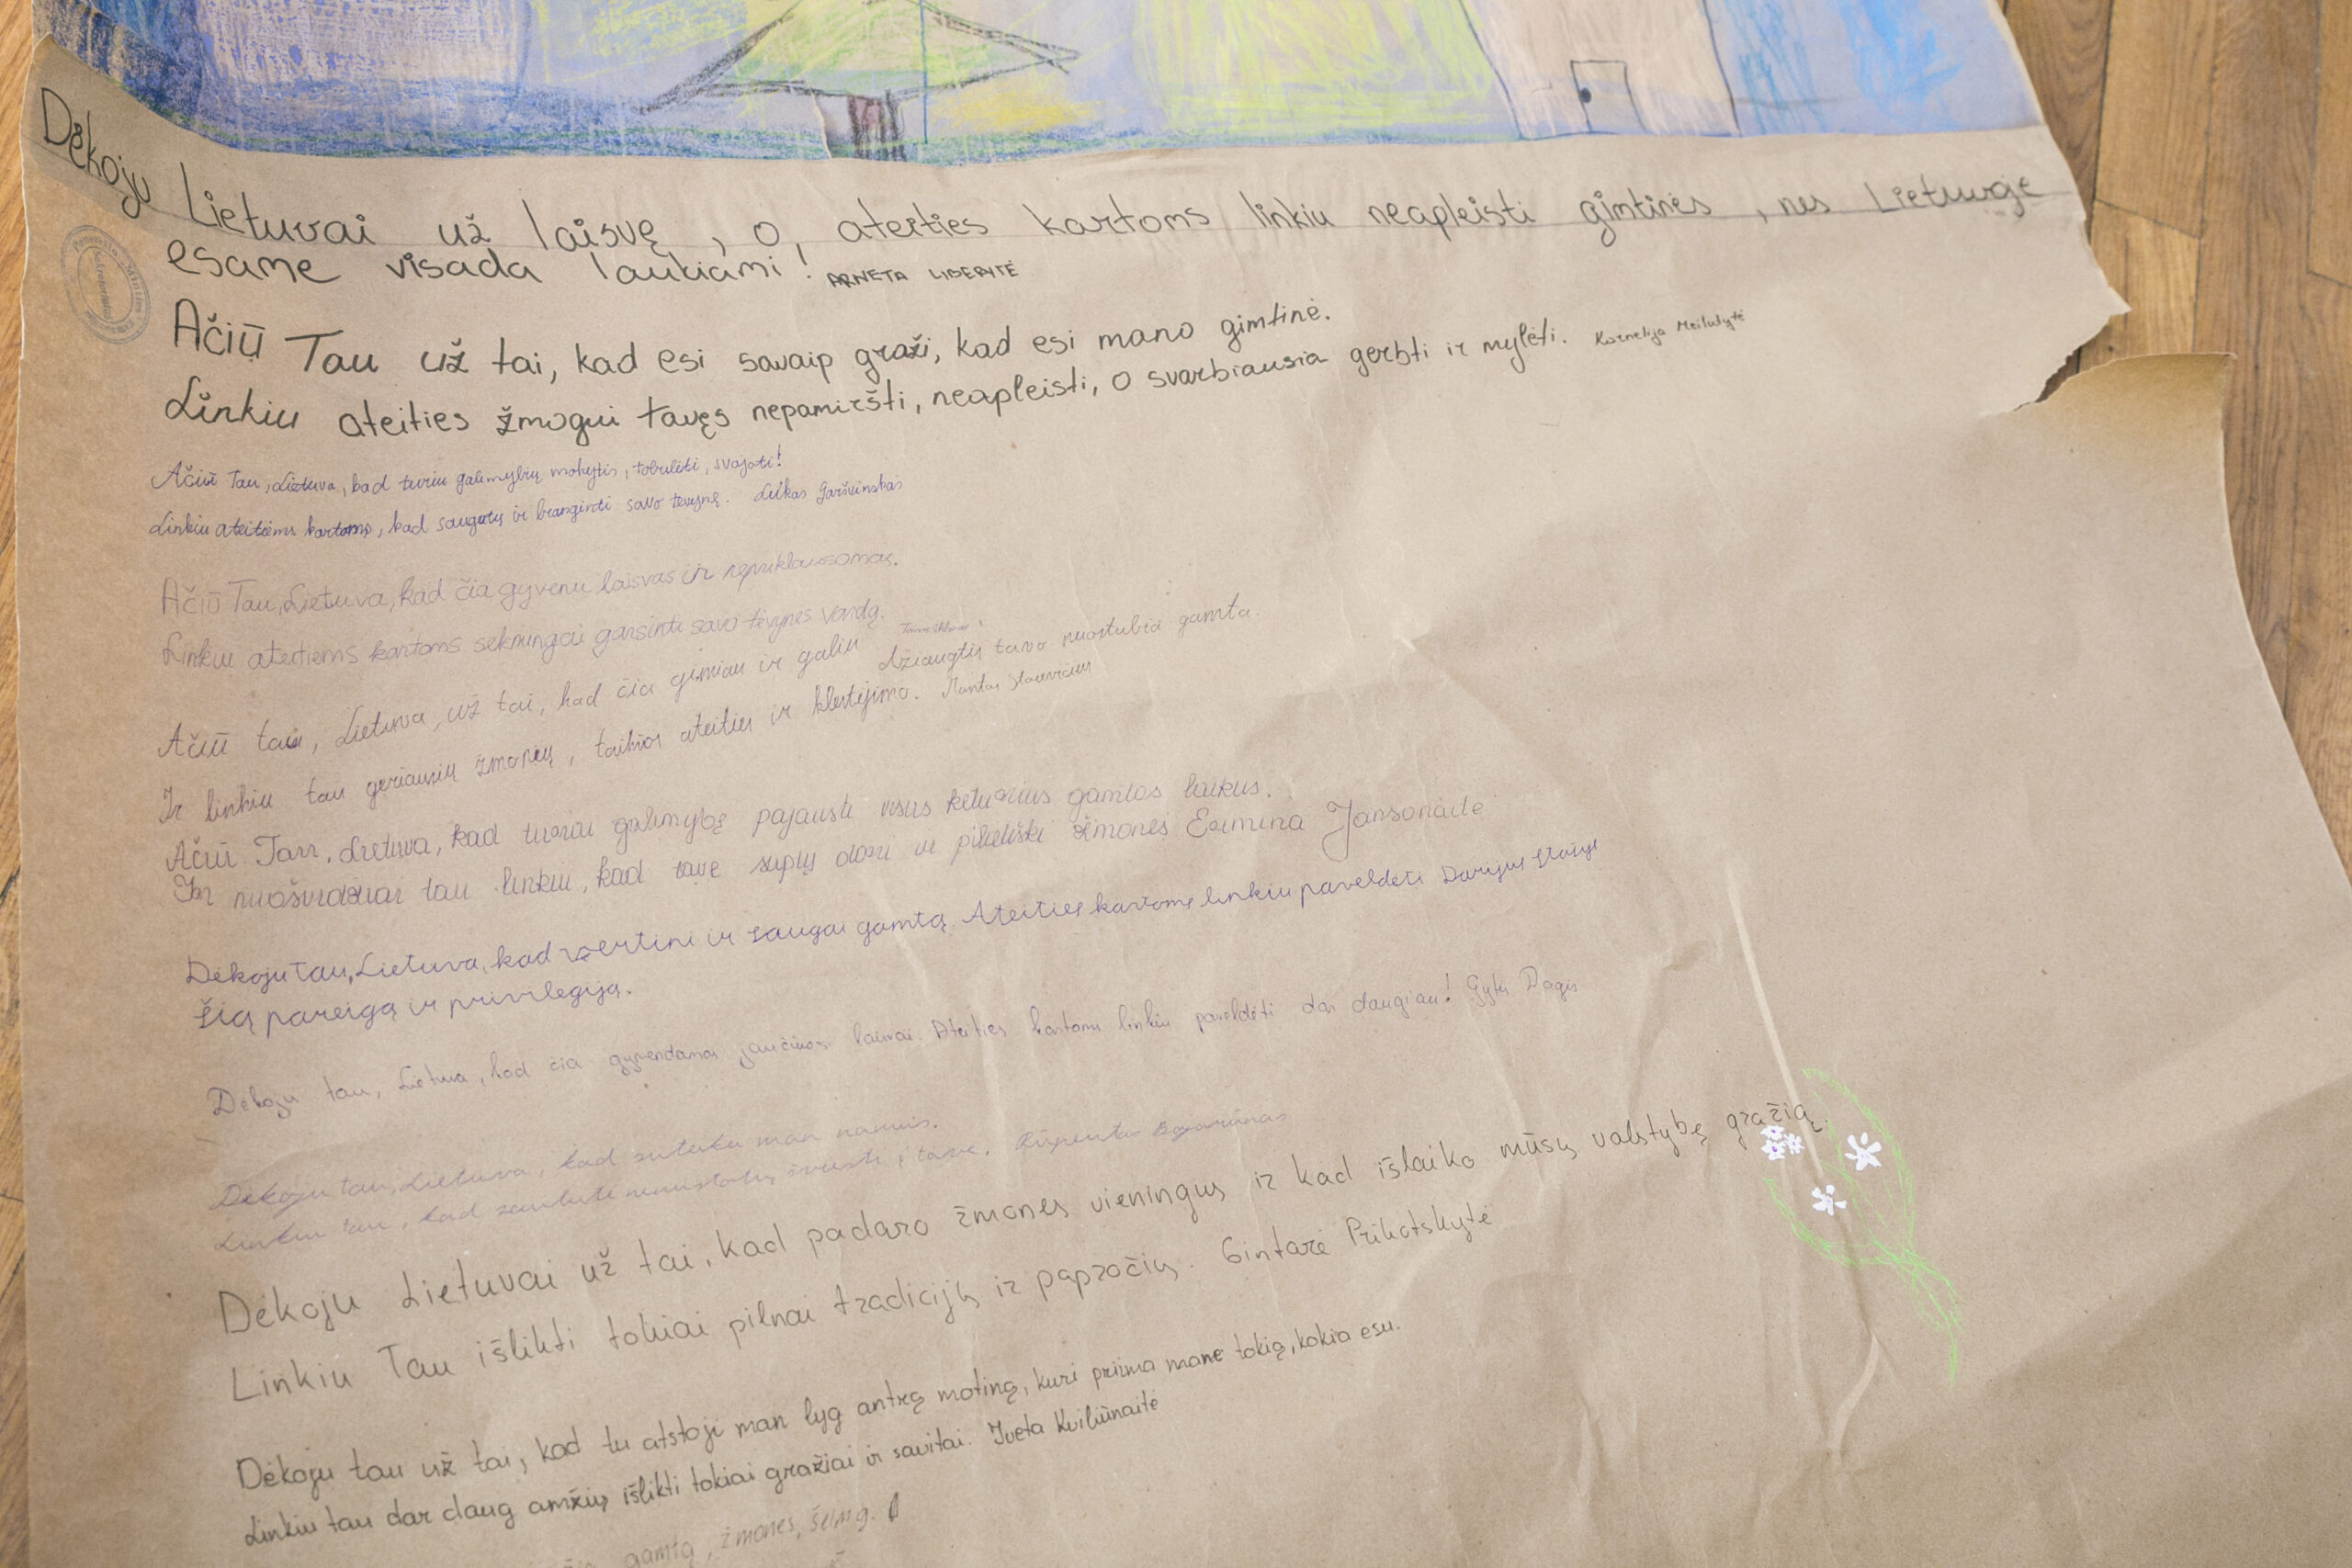 Dėkoju Lietuvai už laisvę, o, ateities kartoms linkiu neapleisti gimtinės, nes Lietuvoje
esame visada laukiami! ARNETA LIBERYTĖ
Ačiū Tau už tai, kad esi savaip graži, kad esi mano gimtinė.
Linkiu ateities žmogui tavęs nepamiršti, neapleisti, o svarbiausia gerbti ir mylėti. Kornelija Meilutytė
Ačiū Tau, Lietuva, kad turiu galimybių mokytis, tobulėti, svajoti!
Linkiu ateitiems kartoms, kad saugotų ir brangintų savo tėvynę. Lukas Garšvinskas
Ačiū Tau, Lietuva, kad čia gyvenu laisvas ir nepriklausomas.
Linkiu ateitiems kartoms sėkmingai garsinti savo tėvynės vardą.
Ačiū tau, Lietuva, už tai, kad čia gimiau ir galiu džiaugtis tavo nuostubia gamta.
Ir linkiu tau geriausių žmonių, taikios ateities ir klestėjimo. Mantas
Ačiū Tau, Lietuva, kad turiu galimybę pajausti visus keturius gamtos laikus.
Ir nuoširdžiai tau linkiu, kad tave suptų dori ir pilietiški žmonės Ermina Jansonaitė
Dėkoju Tau, Lietuva, kad vertini ir saugai gamtą. Ateities kartoms linkiu paveldėti Darijus
šią pareigą ir privilegiją.
Dėkoju tau, Lietuva, kad čia gyvendamas jaučiuosi laisvai. Ateities kartoms linkiu paveldėti dar daugiau! Gytis Dagis
Dėkoju tau, Lietuva, kad suteikei man namus.
Linkiu tau, kad saulutė nenustotų šviesti į tave.
Dėkoju Lietuvai už tai, kad padaro žmones vieningus ir kad išlaiko mūsų valstybę gražią.
Linkiu Tau išlikti tokiai pilnai tradicijų ir papročių. Gintarė Prikotskytė
Dėkoju tau už tai, kad tu atstoji man lyg antrą motiną, kuri priima mane tokią, kokia esu.
Linkiu tau dar daug amžių išlikti tokiai gražiai ir savitai. Iveta Kviliūnaitė
gamtą, žmones, šeimą.